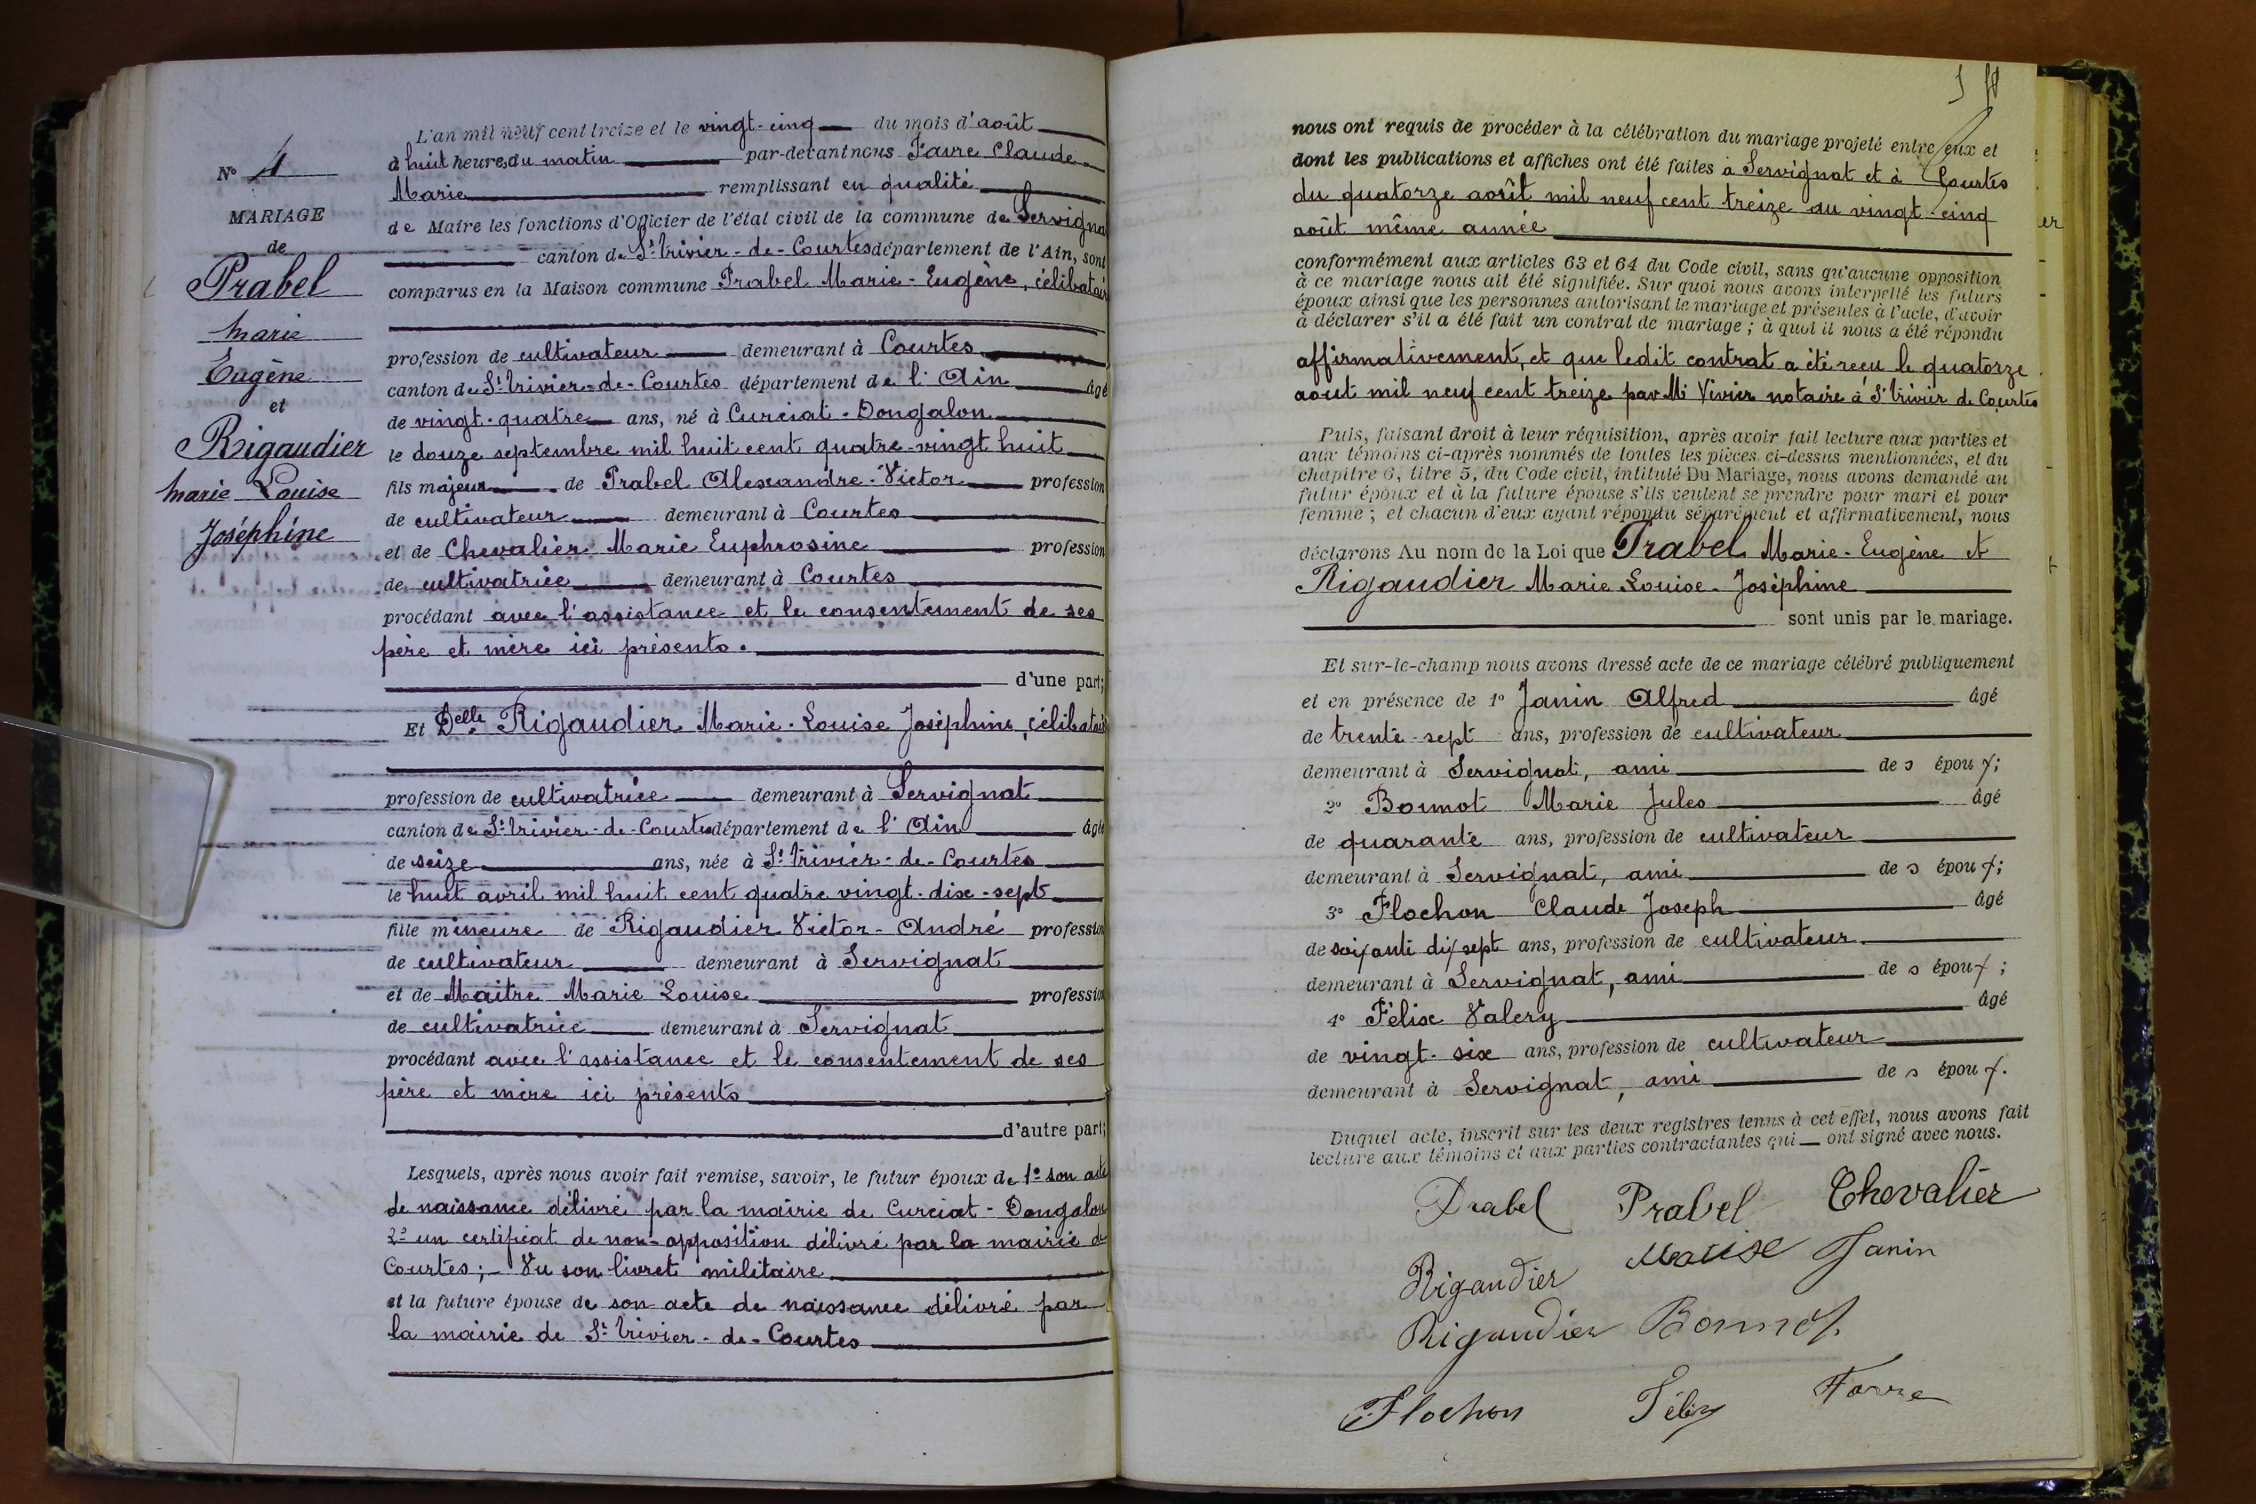 N° 4
MARIAGE
de
Prabel
Marie
Eugène
et
Rigaudier
Marie Louise
Joséphine
L'an mil neuf cent treize et le vingt-cinq du mois d'août
à huit heures du matin par-devant nous Favre Claude
Marie remplissant en qualité
de Maire les fonctions d'Officier de l'état civil de la commune de Servigna
canton de St Trivier-de-Courtes département de l'Ain, sont
comparus en la Maison commune Prabel Marie-Eugène, célibatair
profession de cultivateur demeurant à Courtes
canton de St Trivier-de-Courtes département de l'Ain âgé
de vingt-quatre ans, né à Curciat-Dongalon
le douze septembre mil huit cent quatre-vingt huit
fils majeur de Prabel Alexandre-Victor profession
de cultivateur demeurant à Courtes
et de Chevalier Marie Euphrosine profession
de cultivatrice demeurant à Courtes
procédant avec l'assistance et le consentement de ses
père et mère ici présents.
d'une part;
Et Delle Rigaudier Marie-Louise Joséphine, célibatair
profession de cultivatrice demeurant à Servignat
canton de St Trivier-de-Coustes département de l'Ain âgée
de seize ans, née à St Trivier-de-Courtes
le huit avril mil huit cent quatre vingt-dix-sept
fille mineure de Rigaudier Victor-André profession
de cultivateur demeurant à Servignat
et de Maitre Marie Louise profession
de cultivatrice demeurant à Servignat
procédant avec l'assistance et le consentement de ses
père et mère ici présents
d'autre part;
Lesquels, après nous avoir fait remise, savoir, le futur époux de 1° son acte
de naissance délivré par la mairie de Curciat-Dongalon
2° un certificat de non-opposition délivré par la mairie de
Courtes;- Vu son livret militaire
et la future épouse de son acte de naissance délivré par
la mairie de St Trivier-de-Courtes
nous ont requis de procéder à la célébration du mariage projeté entre eux et
dont les publications et affiches ont été faites à Servignat et à Courtes
du quatorze août mil neuf cent treize au vingt-cinq
août même année
conformément aux articles 63 et 64 du Code civil, sans qu'aucune opposition
à ce mariage nous ait été signifiée. Sur quoi nous avons interpellé les futurs
époux ainsi que les personnes autorisant le mariage et présentes à l'acte, d'avoir
à déclarer s'il a été fait un contrat de mariage; à quoi il nous a été répondu
affirmativement, et que ledit contrat a été reçu le quatorze
aout mil neuf cent treize par Me Vivier notaire à St Trivier de Courtes
Puis, faisant droit à leur réquisition, après avoir fait lecture aux parties et
aux témoins ci-après nommés de toutes les pièces ci-dessus mentionnées, et du
chapitre 6, titre 5, du Code civil, intitulé Du Mariage, nous avons demandé au
futur époux et à la future épouse s'ils veulent se prendre pour mari et pour
femme; et chacun d'eux ayant répondu séparément et affirmativement, nous
déclarons Au nom de la Loi que Prabel Marie-Eugène et
Rigaudier Marie Louise-Joséphine
sont unis par le mariage.
Et sur-le-champ nous avons dressé acte de ce mariage célébré publiquement
et en présence de 1° Janin Alfred âgé
de trente-sept ans, profession de cultivateur
demeurant à Servignat, ami des époux;
2° Bonnot Marie Jules âgé
de quarante ans, profession de cultivateur
demeurant à Servignat, ami des époux;
3° Flochon Claude Joseph âgé
de soixante dix sept ans, profession de cultivateur.
demeurant à Servignat, ami des époux;
4° Félix Valery âgé
de vingt-six ans, profession de cultivateur
demeurant à Servignat, ami des époux.
Duquel acte, inscrit sur les deux registres tenus à cet effet, nous avons fait
lecture aux témoins et aux parties contractantes qui ont signé avec nous.
Prabel Prabel Chevalier
Rigaudier Janin
Rigaudier Bonnot
Flochon Félix Favre